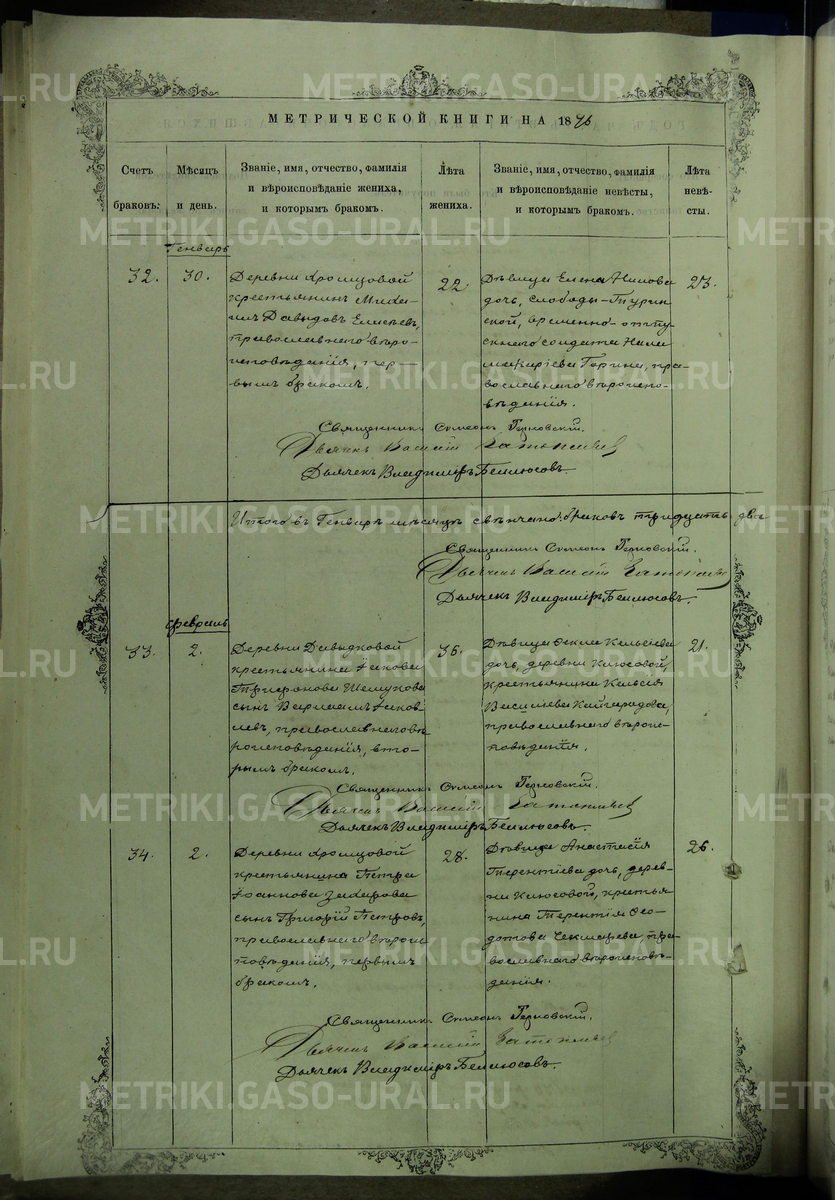 МЕТРИЧЕСКОЙ КНИГИ НА 1876
Счетъ браковъ.
Мѣсяцъ и день.
Званіе, имя, отчество, фамилія
и вѣроисповѣданіе жениха,
и которымъ бракомъ.
Лѣта жениха.
Званіе, имя, отчество, фамилія
и вѣроисповѣданіе невѣсты,
и которымъ бракомъ.
Лѣта невѣ-
сты.
Генварь
32.
30.
Деревни
крестьянинъ Миха-
илъ Давыдовъ Елисѣевъ,
православнаго вѣро-
исповѣданія, пер-
вымъ бракомъ.
22.
Дѣвица Елена Нилова
дочь, слободы Турин-
ской, временно-отпу-
скнаго солдата Нила
Горина, пра-
вославнаго вѣроиспо-
вѣданія.
23.
Священникъ Симеонъ
Дьячекъ Василій
Дьячекъ Владиміръ
Итого въ Генварѣ мѣсяцѣ свѣнчано браковъ тридцать два
Священникъ Симеонъ
Дьячекъ Василій
Дьячекъ Владиміръ
Февраль
33.
2.
Деревни Давыдковой
крестьянина Іакова
Шемукова
сынъ Варлаамъ Іаков-
левъ, православнаго вѣ-
роисповѣданія, вто-
рымъ бракомъ.
36.
Дѣвица Кельсіева
дочь, деревни Клюсовой,
крестьянина Кельсія
Васильева Кайгородова,
православнаго вѣроис-
повѣданія.
21.
Священникъ Симеонъ
Дьячекъ Василій
Дьячекъ Владиміръ
34.
2.
Деревни
крестьянина Петра
Іоаннова Захарова
сынъ Григорій Петровъ,
православнаго вѣроис-
повѣданія, первымъ
бракомъ.
28.
Дѣвица Анастасія
Терентіева дочь, дерев-
ни Клюсовой, крестья-
нина Терентія Ѳео-
дотова пра-
вославнаго вѣроисповѣ-
данія.
26.
Священникъ Симеонъ
Дьячекъ Василій
Дьячекъ Владиміръ
METRIKI.GASO-URAL.RU